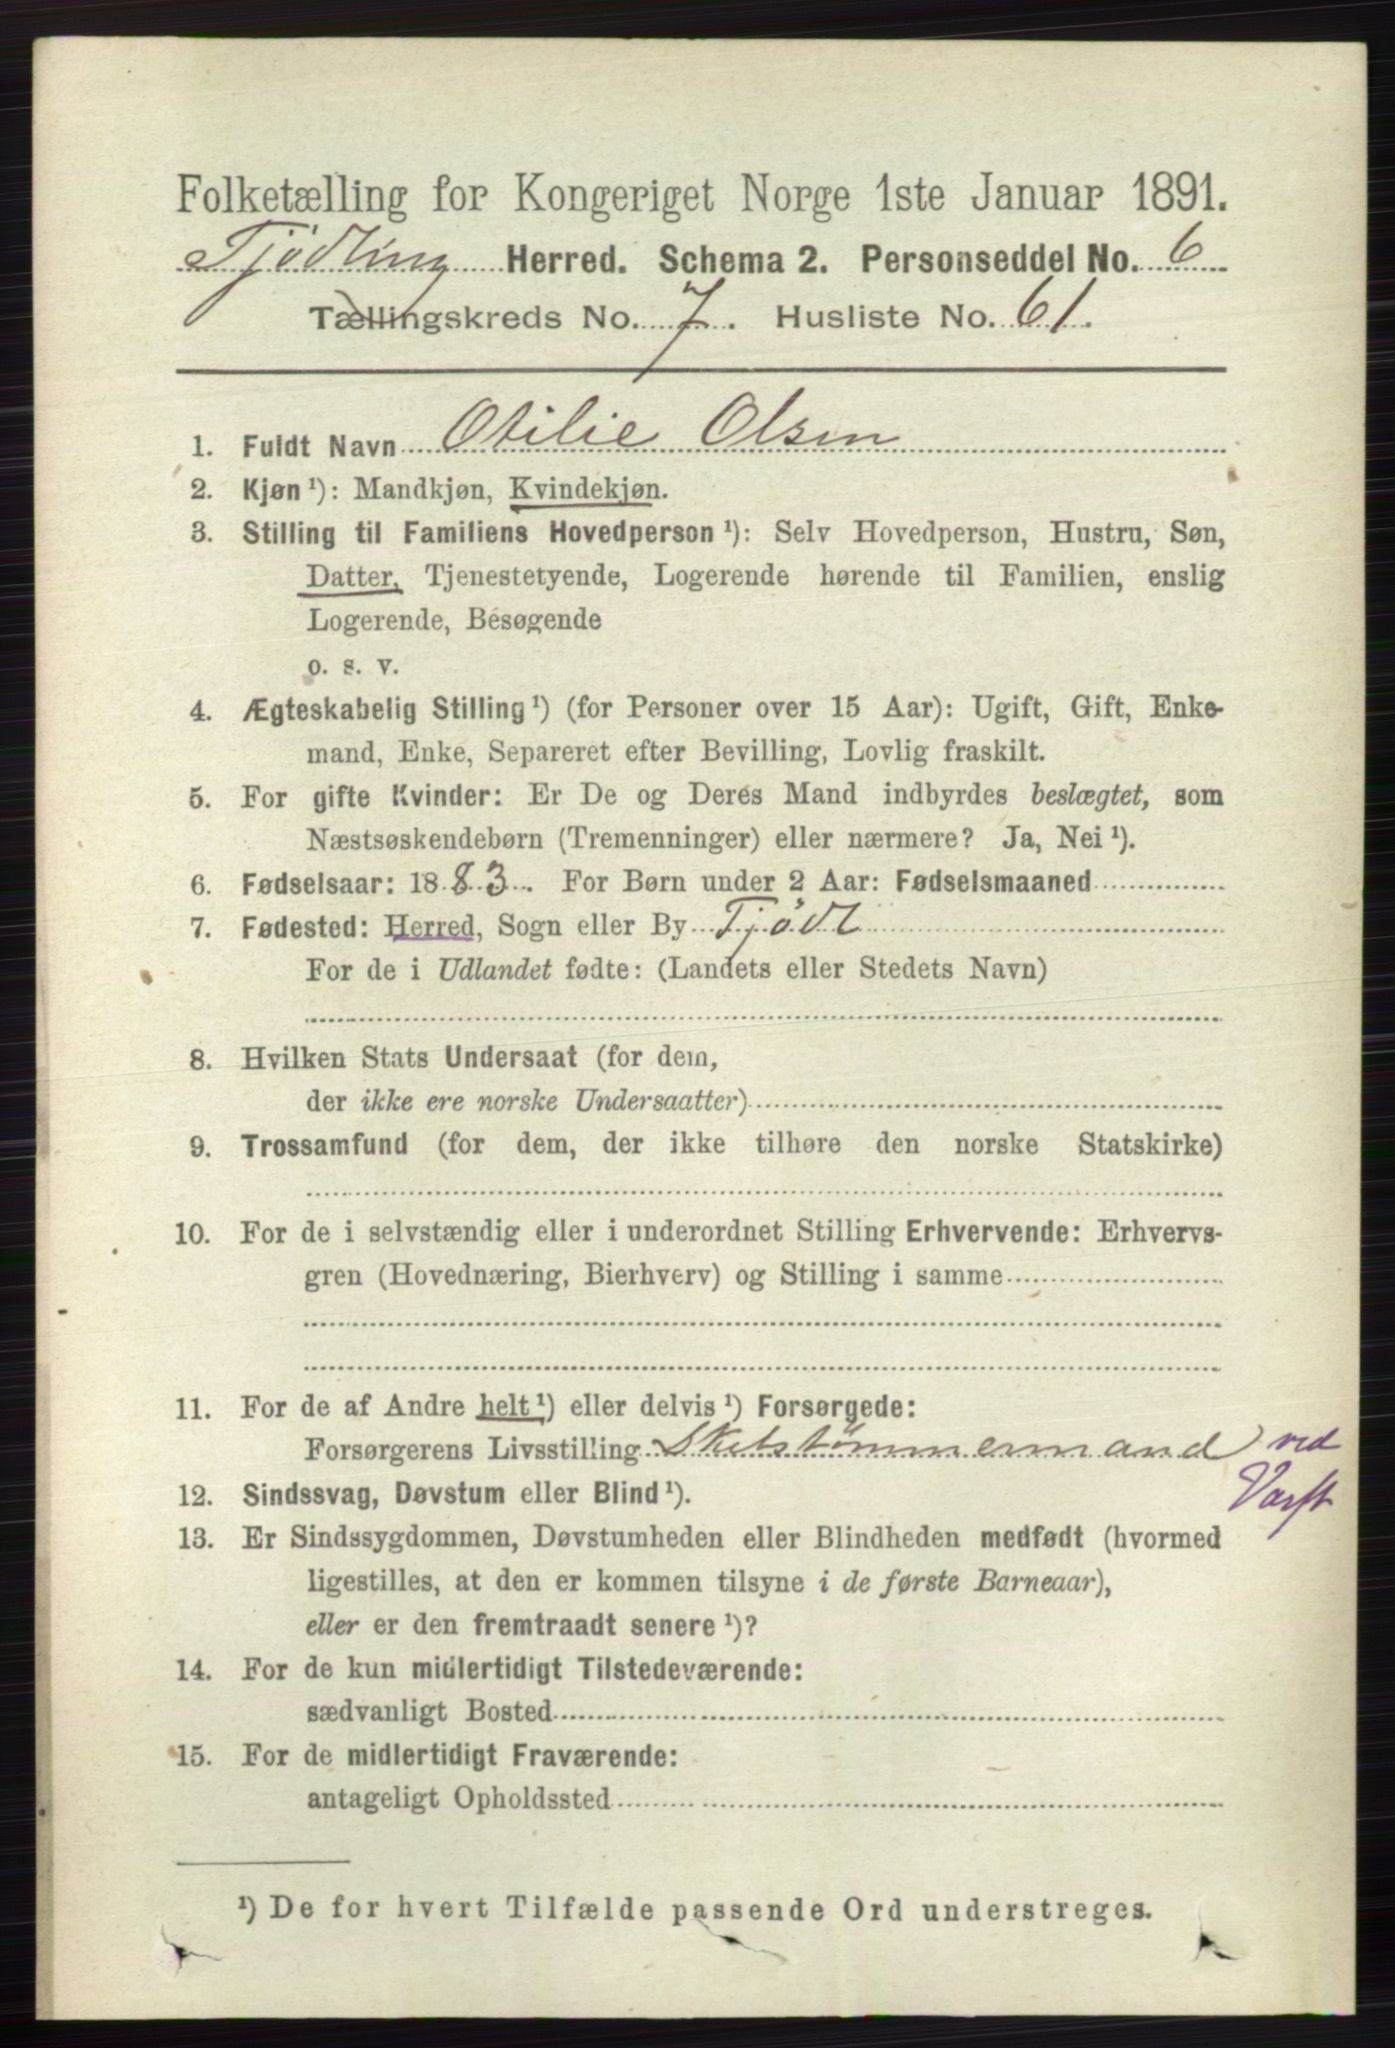 Folketælling for Kongeriget Norge 1ste Januar 1891.
Tjödling Herred. Schema 2. Personseddel No. 6
Tællingskreds No. 7. Husliste No. 61.
1. Fuldt Navn Otilie Olsen
2. Kjøn ¹): Mandkjøn, Kvindekjøn.
3. Stilling til Familiens Hovedperson ¹): Selv Hovedperson, Hustru, Søn,
Datter, Tjenestetyende, Logerende hørende til Familien, enslig
Logerende, Besøgende
o. s. v.
4. Ægteskabelig Stilling ¹) (for Personer over 15 Aar): Ugift, Gift, Enke-
mand, Enke, Separeret efter Bevilling, Lovlig fraskilt.
5. For gifte Kvinder: Er De og Deres Mand indbyrdes beslægtet, som
Næstsøskendebørn (Tremenninger) eller nærmere? Ja, Nei ¹).
6. Fødselsaar: 1883. For Børn under 2 Aar: Fødselsmaaned
7. Fødested: Herred, Sogn eller By Tjödl
For de i Udlandet fødte: (Landets eller Stedets Navn)
8. Hvilken Stats Undersaat (for dem,
der ikke ere norske Undersaatter)
9. Trossamfund (for dem, der ikke tilhøre den norske Statskirke)
10. For de i selvstændig eller i underordnet Stilling Erhvervende: Erhvervs-
gren (Hovednæring, Bierhverv) og Stilling i samme
11. For de af Andre helt ¹) eller delvis ¹) Forsørgede:
Forsørgerens Livsstilling Skibstömmermand ved
Varft
12. Sindssvag, Døvstum eller Blind ¹).
13. Er Sindssygdommen, Døvstumheden eller Blindheden medfødt (hvormed
ligestilles, at den er kommen tilsyne i de første Barneaar),
eller er den fremtraadt senere ¹)?
14. For de kun midlertidigt Tilstedeværende:
sædvanligt Bosted
15. For de midlertidigt Fraværende:
antageligt Opholdssted
¹) De for hvert Tilfælde passende Ord understreges.